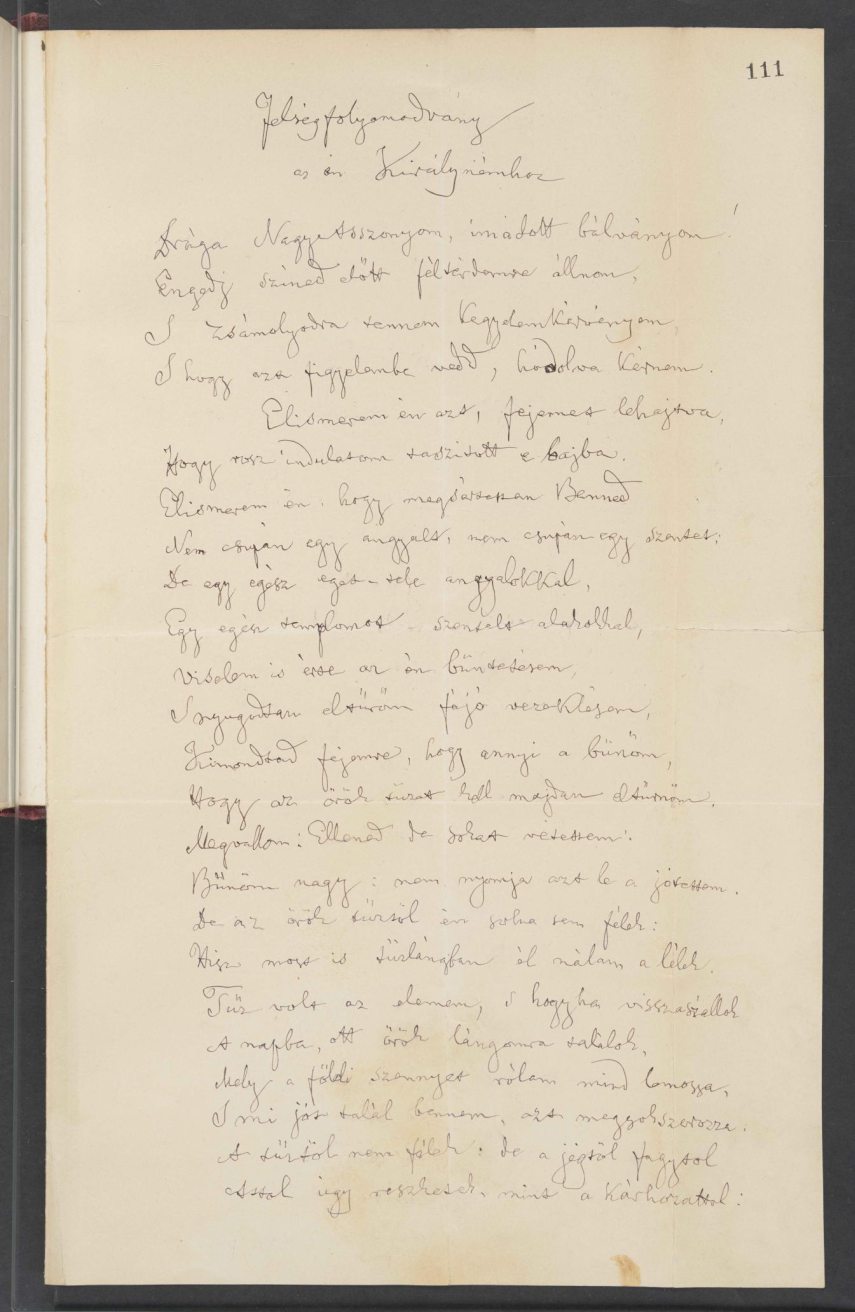 111
Felségfolyamodvány
az én Királynémhoz
Drága NagyAsszonyom, imádott bálványom!
Engedj szined előtt féltérdemre állnom,
S Zsámolyodra tennem Kegyelemkérvényem,
S hogy azt figyelembe vedd, hódolva kérnem.
Elismerem én azt, fejemet lehajtva,
Hogy rosz indulatom taszitott e bajba.
Elismerem én, hogy megsértettem Benned
Nem csupán egy angyalt, nem csupán egy szentet;
De egy egész eget – tele angyalokkal,
Egy egész templomot – szentelt alakokkal,
Viselem is érte az én büntetésem,
S nyugodtan eltüröm fájó vezeklésem,
Kimondtad fejemre, hogy annyi a bünöm,
Hogy az örök tüzet kell majdan eltürnöm.
Megvallom: Ellened de sokat vetettem:
Bünöm nagy: nem nyomja azt le a jótettem.
De az örök tüztöl én soha sem félek:
Hisz most is tüzlángban él nálam a lélek.
Tüz volt az elemem, s hogyha visszaszállok
A napba, ott örök lángomra találok,
Mely a földi szennyet rólam mind lemossa,
S mi jót talál bennem, azt megsokszorozza.
A tüztöl nem félek: de a jégtöl fagytol
Attol ugy reszketek, mint a kárhozattol: